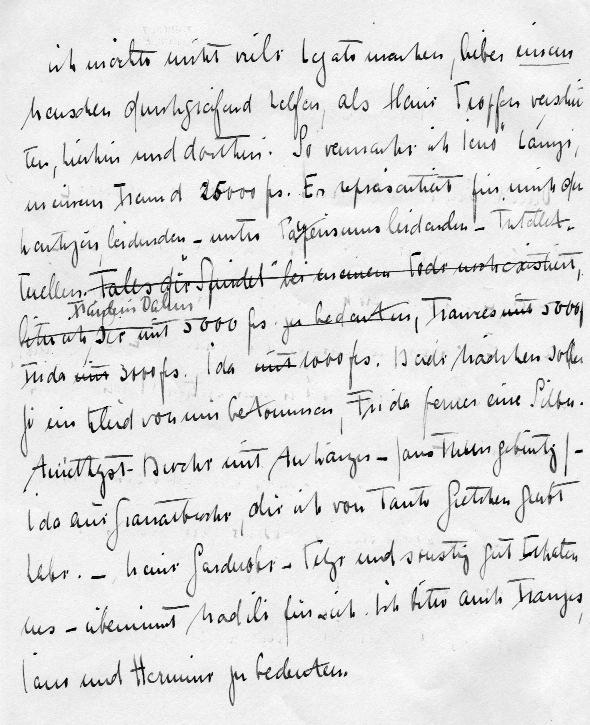 ich möchte nicht viele Legate machen, lieber einem
Menschen durchgreifend helfen, als kleine Tropfen verschüt
ten, hierhin und dorthin. So vermache ich Jenö Lányi,
meinem Freund 25000 frs. Er repräsentiert für mich die
heutigen, leidenden – unter Faszismus leidenden – Intellek-
tuellen. Falls die "Spindel" bei meinem Tode noch existiert,
Fräulein Dalm
bitte ich, Sie mit 5000 frs. zu bedenken, Franzes mit 5000 f
Frida mit 3000 frs., Ida mit 1000 frs. Beide Mädchen sollen
je ein Kleid von mir bekommen, Frida ferner eine Silber-
Amethyst-Broche mit Anhänger – 
Ida eine Granatbroche, die ich von Tante Gretchen geerbt
habe. – Meine Garderobe – Pelze und sonstig gut Erhaltene
 – übernimmt Mädi für sich. Ich bitte auch Franzes,
 und Hermine zu bedenken.